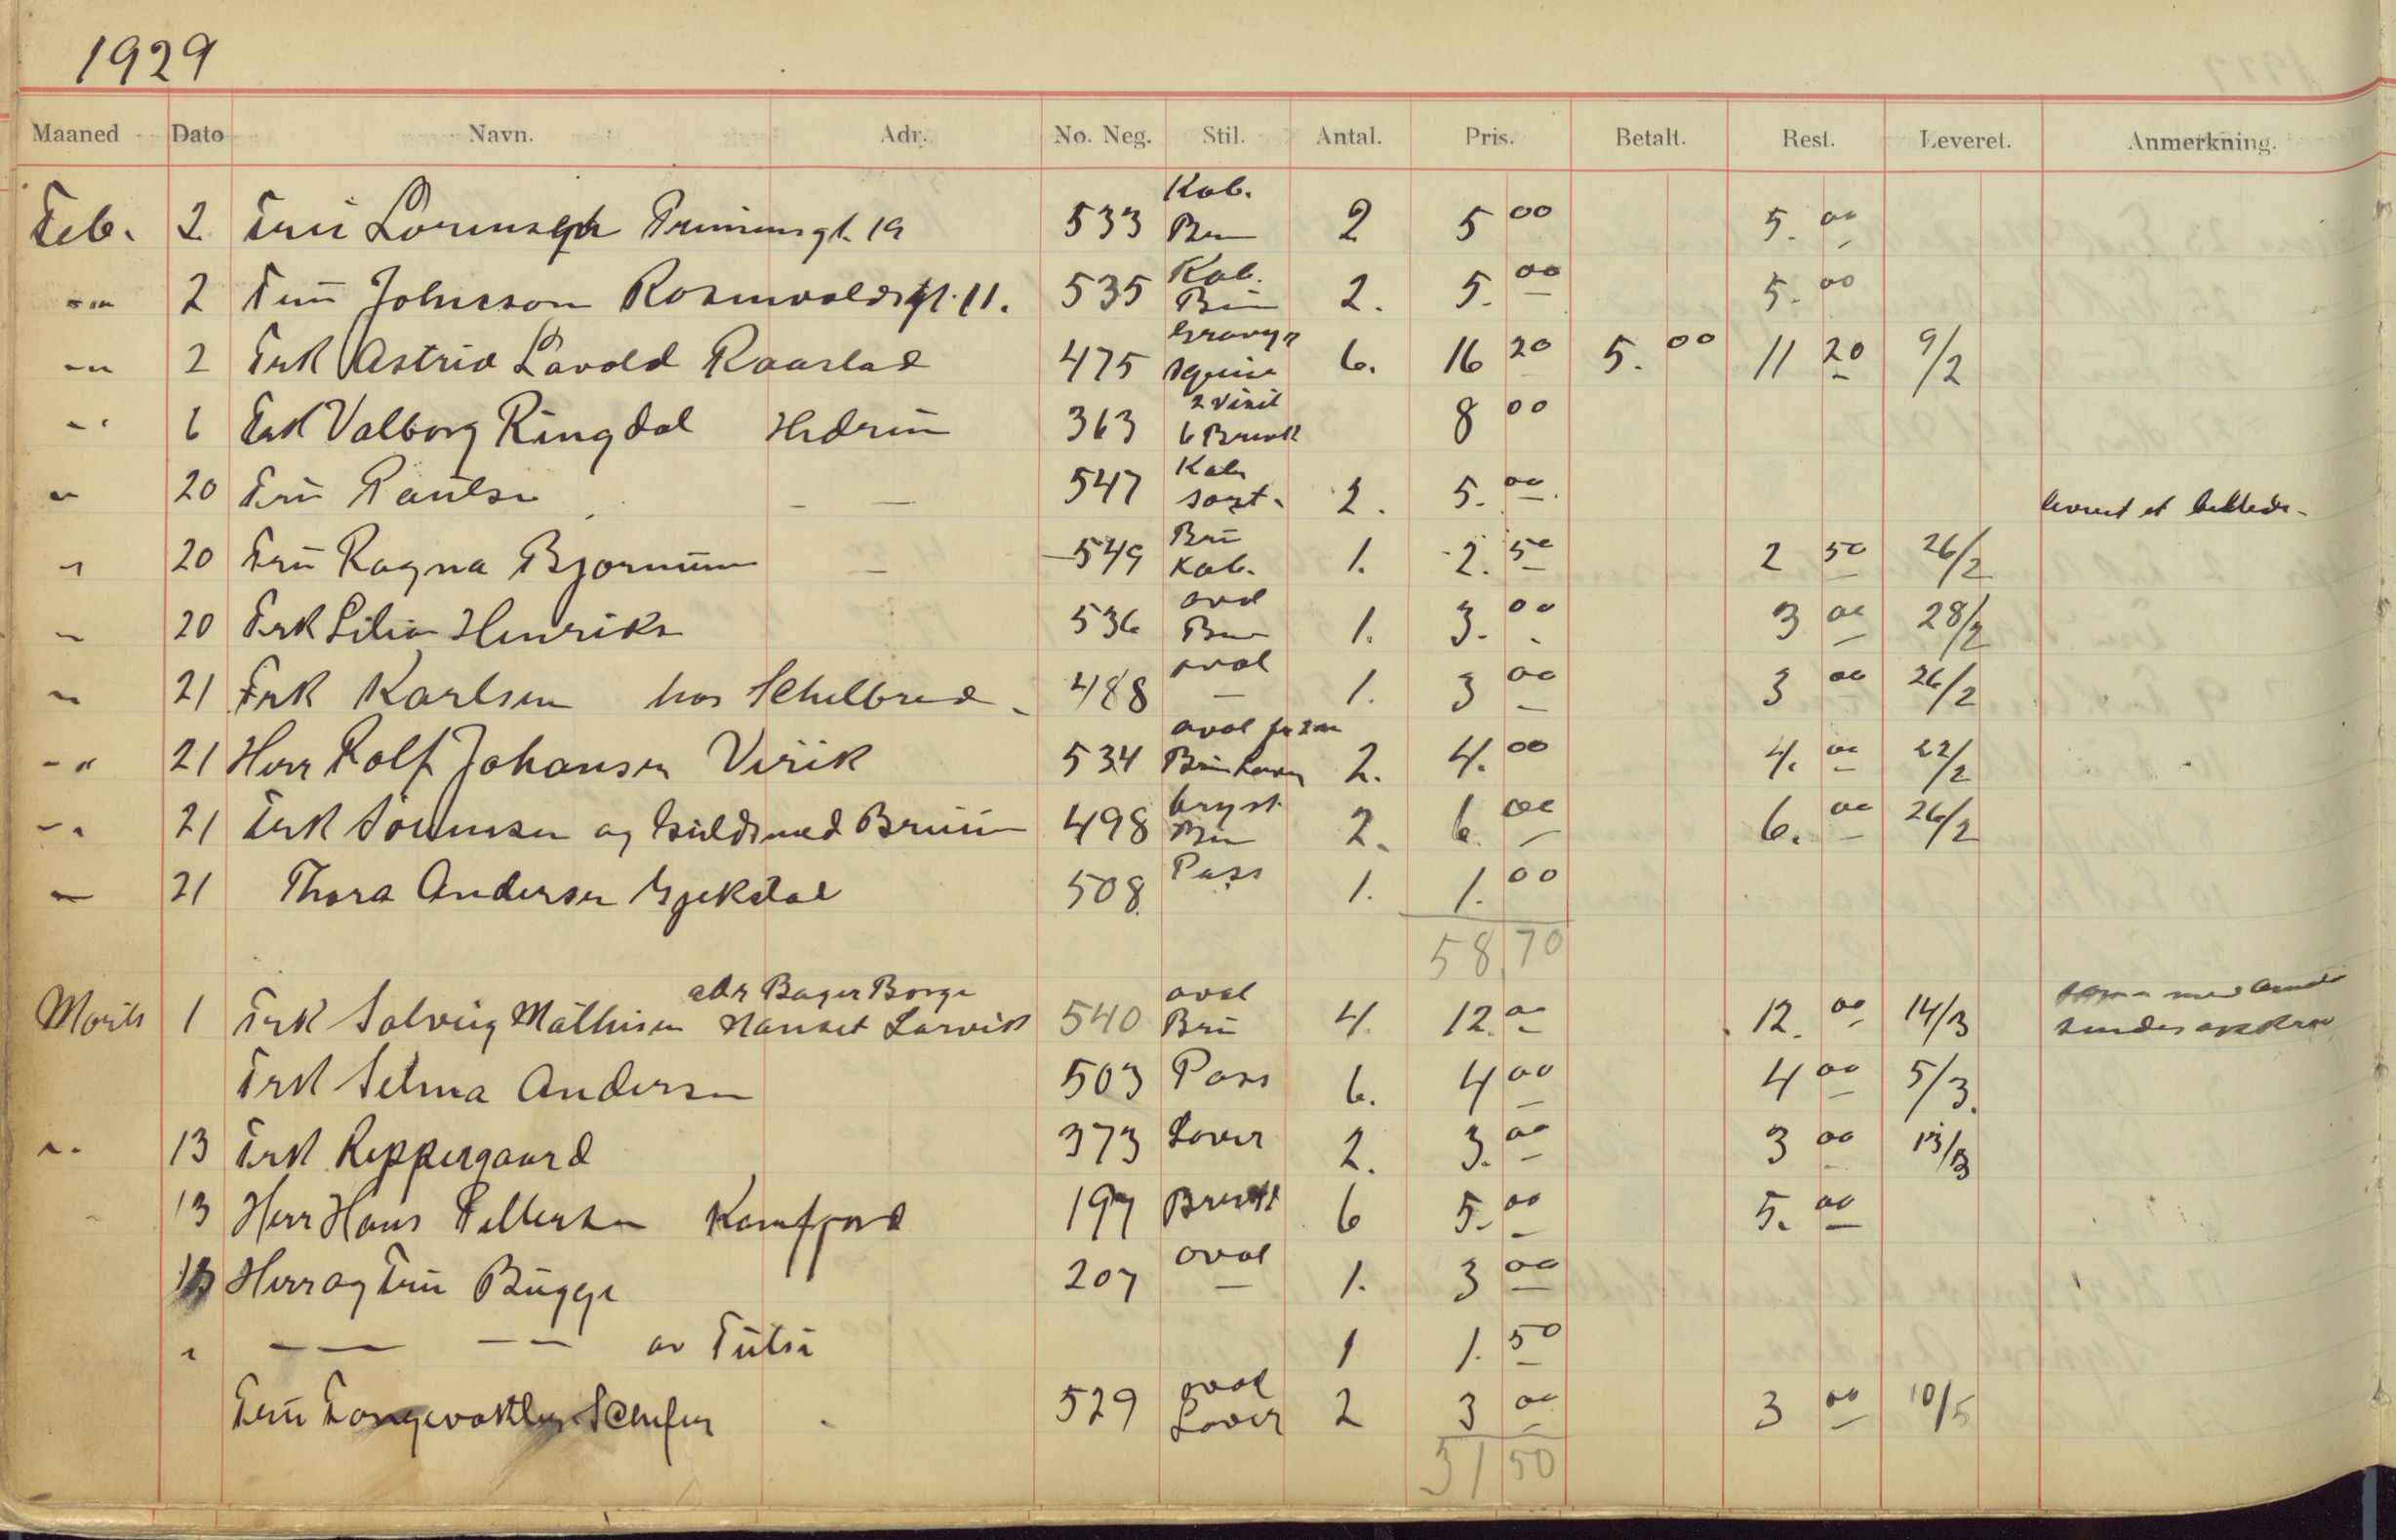 1929
Maaned Dato Navn. Adr. No. Neg. Stil. Antal. Pris. Betalt. Rest. Leveret. Anmerkning.
Kab.
Feb. 2 Fru 19 533 Brun 2 5 00 5. 00
Kab.
2 Fru Johnson 11. 535 Brun 2. 5. 00 5. 00
2 Frk Astrid Lavold Raastad 475 6. 16 20 5. 00 11 20 9/2
2 Visit
6 Frk Valborg Ringdal Hedrum 363 6 Brevk 8 00
Kab
20 Fru Paulsen 547 sort. 2. 5. 00 levert et billede
Brun
20 Fru Ragna Bjørnum 549 Kab. 1. 2. 50 2 50 26/2
oval
20 Frk Lilian Henriksen 536 Brun 1. 3. 00 3 00 28/2
oval
21 Frk Karlsen hos Schelbred 488 — 1. 3 00 3 00 26/2
oval
21 Herr Rolf Johansen Virik 534 2. 4. 00 4. 00 22/2
bryst
21 Frk Sørensen og Guldsmed Bruun 498 Brun 2. 6. 00 6. 00 26/2
Pass
21 Thora Andersen Gjekstad 508 1. 1. 00
58 70
adr Bager Borge oval
Marts 1 Frk Solveig Mathisen Nanset Larvik 540 Brun 4. 12. 00 12. 00 14/3 sendes
Frk Selma Andersen 503 Pass 6. 4 00 4 00 5/3.
13 Frk Reppergaard 373 Lover 2. 3. 00 3 00 13/3
13 Herr Hans Pettersen Kamfjord 197 Brevk 6 5. 00 5. 00
oval
13 Herr og Fru Bugge 207 — 1. 3 00
— — — av 1 1. 50
oval
Fru 529 Lover 2 3 00 3 00 10/5
51 50